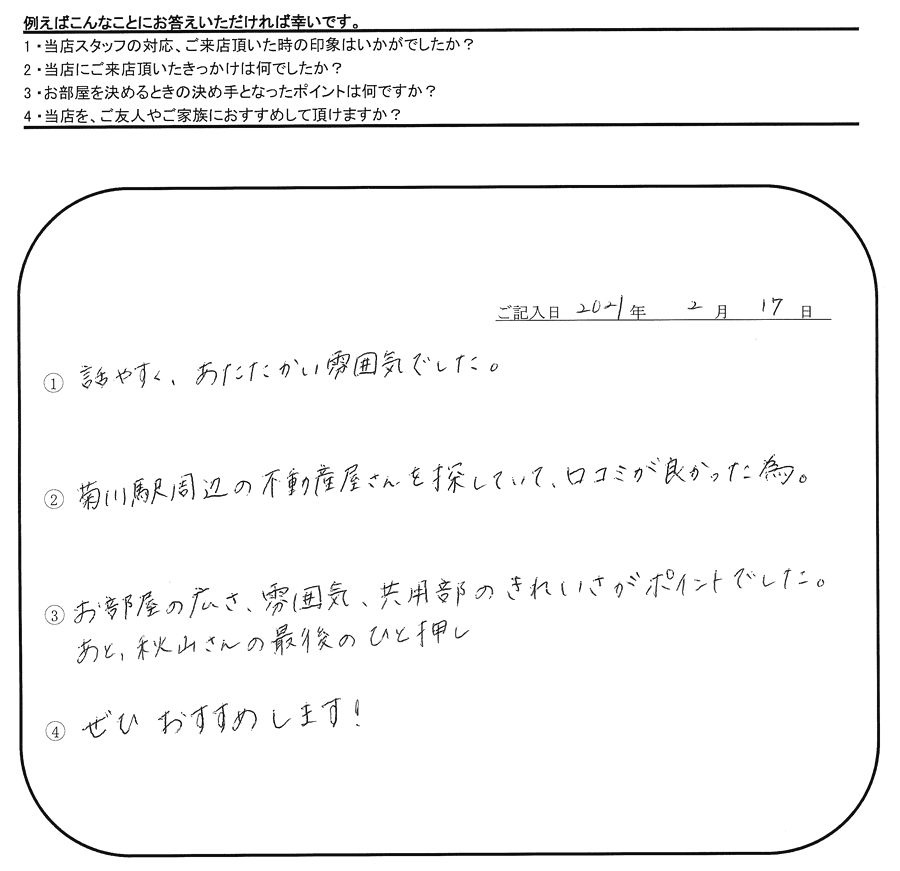 例えばこんなことにお答えいただければ幸いです。
1・当店スタッフの対応、ご来店頂いた時の印象はいかがでしたか?
2・当店にご来店頂いたきっかけは何でしたか?
3・お部屋を決めるときの決め手となったポイントは何ですか?
4・当店を、ご友人やご家族におすすめして頂けますか?
ご記入日 2021年 2月 17日
① 話やすく、あたたかい雰囲気でした。
② 菊川駅周辺の不動産屋さんを探していて、口コミが良かった為。
③ お部屋の広さ、雰囲気、共用部のきれいさがポイントでした。
あと、秋山さんの最後のひと押し
④ ぜひ おすすめします!